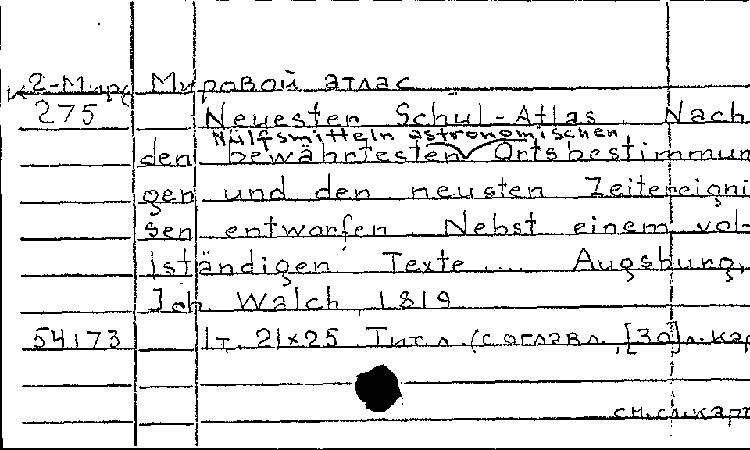 К2-Мир Мировой атлас
275 Neuester Schul-Atlas Nach
Hülfsmitteln astronomischen
den bewährtesten Ortsbestimmun
gen und den neusten Zeitereigni
sen entworfen Nebst einem vol-
lständigen Texte ... Augsburg,
Joh Walch, 1819
54173 1т. 21×25 Тит.л. (с оглавл., [30]л.кар
см.сл.карт